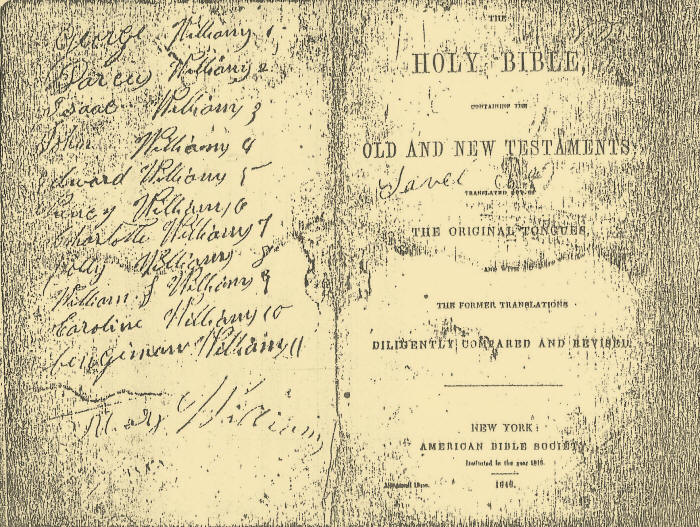 George Williams 1
Darcus Williams 2
Isaac Williams 3
John Williams 4
Edward Williams 5
Williams 6
Charlotte Williams 7
Polly Williams 8
William J Williams 9
Caroline Williams 10
Williams 11
Mary Williams
THE
HOLY BIBLE,
CONTAINING THE
OLD AND NEW TESTAMENTS:
TRANSLATED OUT OF
THE ORIGINAL TONGUES
AND WITH THE
THE FORMER TRANSLATIONS
DILIGENTLY COMPARED AND REVISED.
NEW YORK:
AMERICAN BIBLE SOCIETY
Instituted in the year 1816.